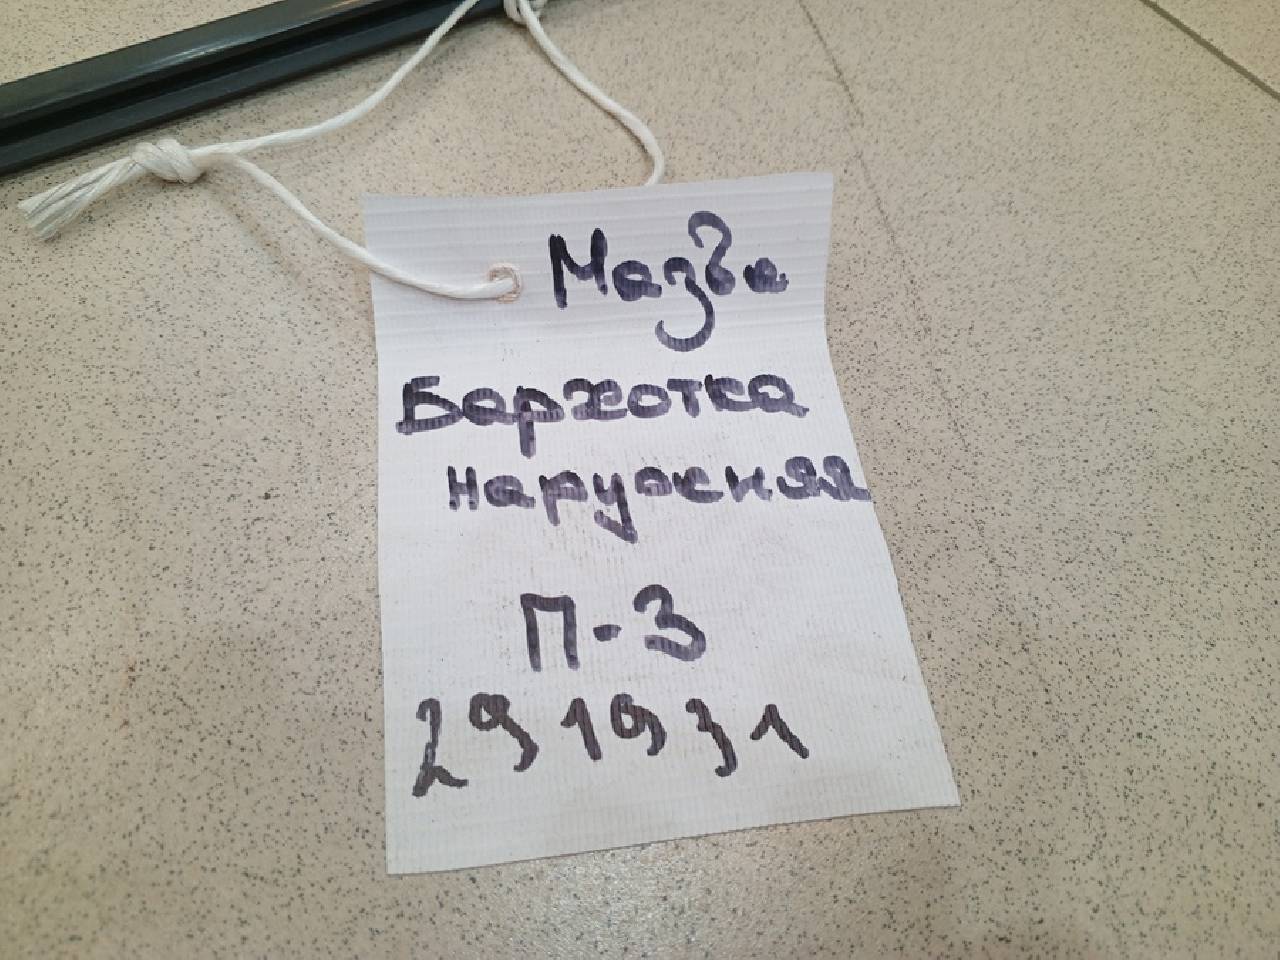 Мазда
Бархотка
наружняя
П-3
291931